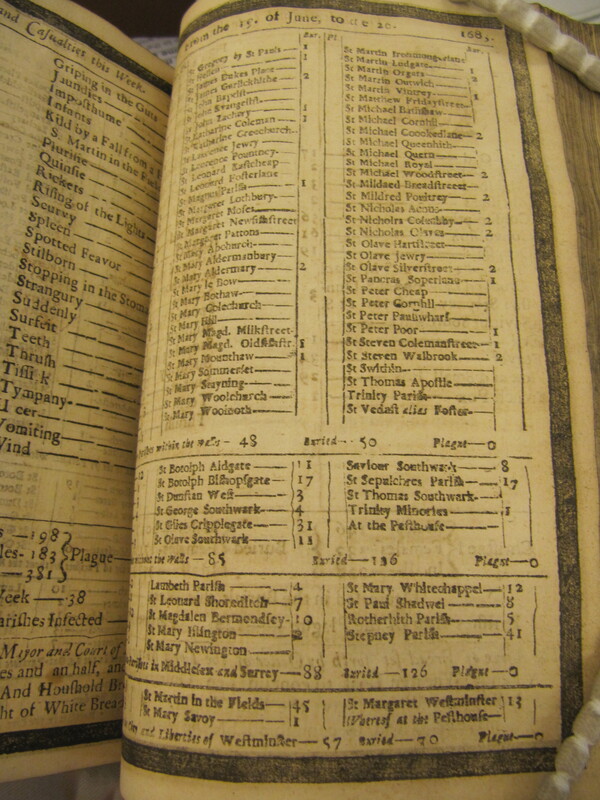 and Casualties this Week.
Griping in the Guts
Jaundies
Imposthume
Infants
Kild by a Fall from a
S. Martin in the Field
Plurisie
Quinsie
Rickets
Rising of the Lights
Scurvy
Spleen
Spotted Feavor
Stilborn
Stopping in the Stom
Strangury
Suddenly
Surfeit
Teeth
Thrush
Tissick
Tympany
Vomiting
Wind
198
183 Plague
381
Week — 38
Parishes Infected
Mayor and Court of
es and an half, and
And Houshold Br
ht of White Brea
From the 19. of June, to 168
Bur. Pl
St Gregory by St Pauls 1
St James Dukes Place
St James Garlickhithe
St John Baptist
St John Evangelist
St John Zachery 1
St Katharine Coleman 1
St Katharine Creechurch
St Lawrence Jewry
St Lawrence Pountney
St Leonard Eastcheap
St Leonard Fosterlane
St Magnus Parish 1
St Margaret Lothbury
St Margaret Moses
St Margaret Newfishstreet
St Margaret Pattons
St Mary Abchurch
St Mary Aldermanbury
St Mary Aldermary 2
St Mary le Bow
St Mary Bothaw
St Mary Colechurch
St Mary Hill
St Mary Magd. Milkstreet
St Mary Magd. Oldfishstr. 1
St Mary Mounthaw 1
St Mary Sommerset
St Mary Stayning
St Mary Woolchurch
St Mary Woolnoth
St Martin Ironmongerlane
St Martin Ludgate 1
St Martin Orgars
St Martin Outwich 2
St Martin Vintrey 1
St Matthew Fridaystreet
St Michael Bassishaw
St Michael Cornhil
St Michael Crookedlane 2
St Michael Queenhith
St Michael Quern
St Michael Royal
St Michael Woodstreet 2
St Mildred Breadstreet
St Mildred Poultrey 2
St Nicholas Acons
St Nicholas Coleabby 2
St Nicholas Olaves 2
St Olave Hartstreet
St Olave Jewry
St Olave Silverstreet 2
St Pancras Soperlane 1
St Peter Cheap
St Peter Cornhil
St Peter Paulswharf
St Peter Poor 1
St Steven Colemanstreet 1
St Steven Walbrook 2
St Swithin
St Thomas Apostle
Trinity Parish
St Vedast alias Foster
within the walls — 48 Buried — 50 Plague — 0
St Botolph Aldgate 11
St Botolph Bishopsgate 17
St Dunstan West 3
St George Southwark 4
St Giles Cripplegate 31
St Olave Southwark
Saviour Southwark 8
St Sepulchres Parish 17
St Thomas Southwark
Trinity Minories 1
At the Pesthouse
the Walls — 85 Buried — 136 Plague — 0
Lambeth Parish 4
St Leonard Shoreditch 7
St Magdalen Bermondsey 10
St Mary Islington 2
St Mary Newington
St Mary Whitechappel 12
St Paul Shadwel 8
Rotherhith Parish 5
Stepney Parish 41
in Middlesex and Surrey — 88 Buried — 126 Plague — 0
St Martin in the Fields 45
St Mary Savoy 1
St Margaret Westminster 13
Whereof at the Pesthouse
City and Liberties of Westminster — 57 Buried — 70 Plague — 0